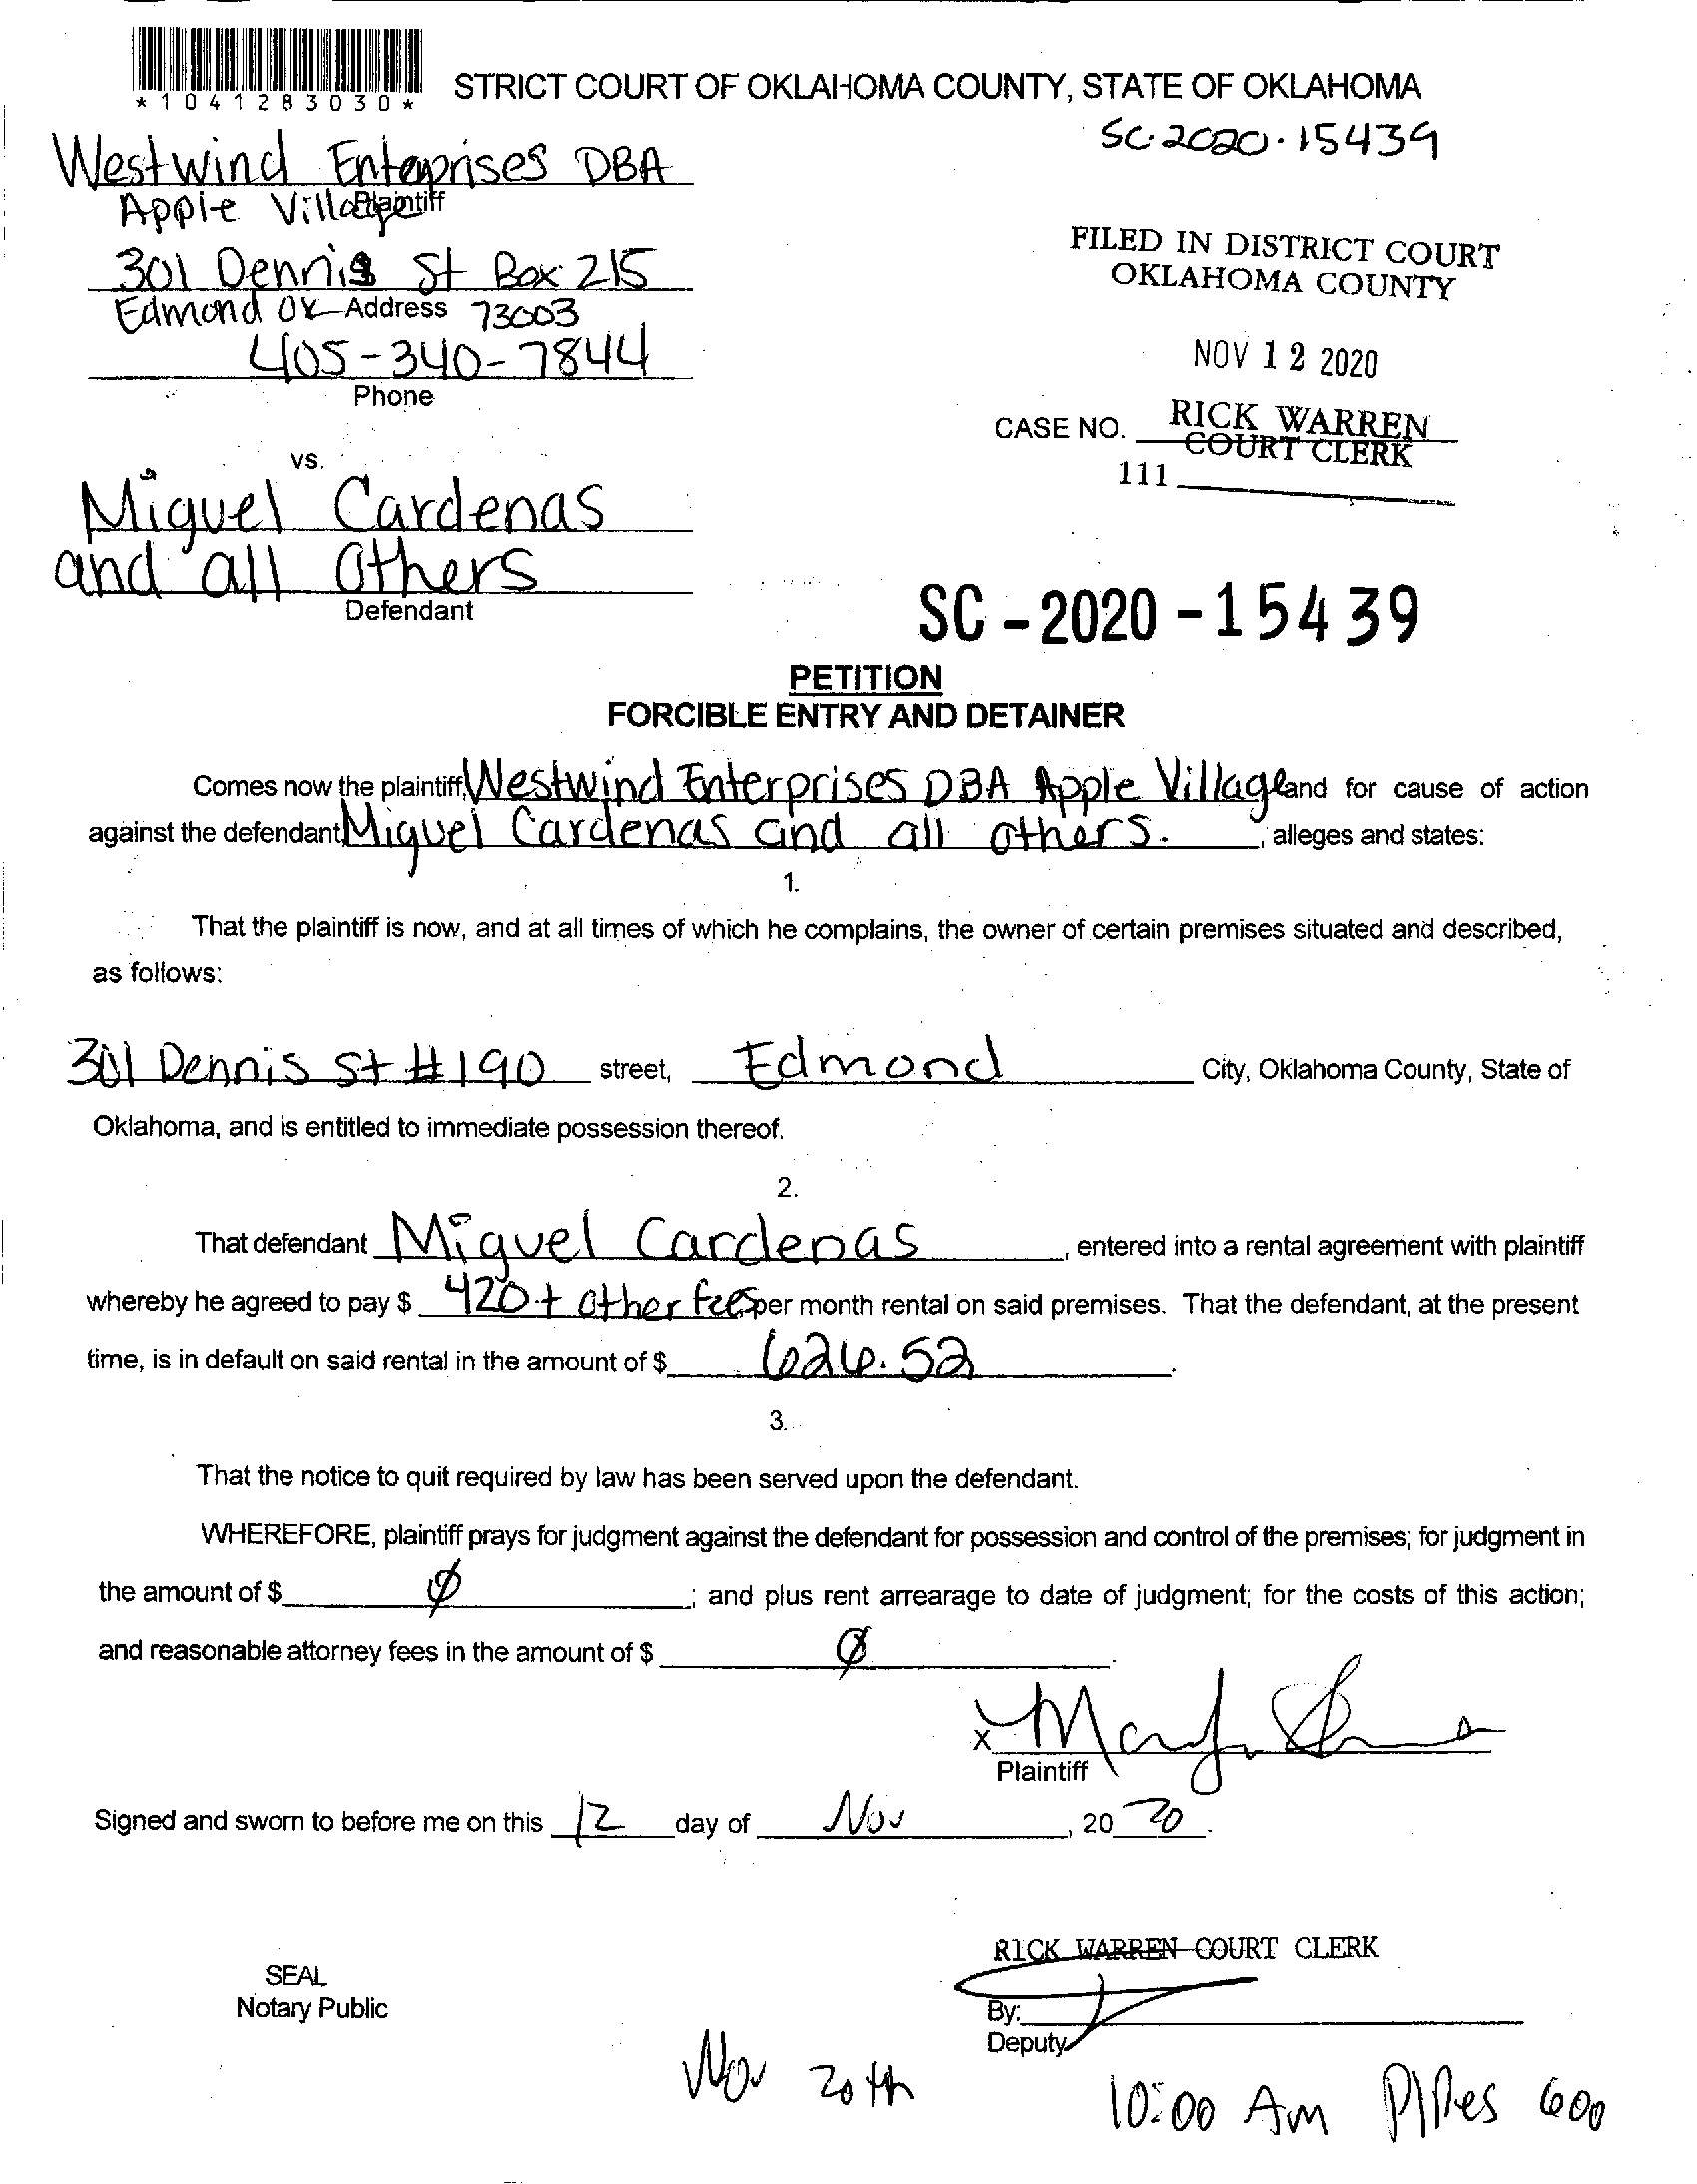 *1041283030*
STRICT COURT OF OKLAHOMA COUNTY, STATE OF OKLAHOMA
SC-2020-15439
Westwind Enterprises DBA
Apple Village
Plaintiff
301 Dennis St Box 215
Edmond OK 73003
Address
405-340-7844
Phone
FILED IN DISTRICT COURT
OKLAHOMA COUNTY
NOV 12 2020
RICK WARREN
COURT CLERK
CASE NO.
111
vs.
Miguel Cardenas
and all others
Defendant
SC-2020-15439
PETITION
FORCIBLE ENTRY AND DETAINER
Comes now the plaintiff, Westwind Enterprises DBA Apple Village and for cause of action
against the defendant Miguel Cardenas and all others. , alleges and states:
1.
That the plaintiff is now, and at all times of which he complains, the owner of certain premises situated and described,
as follows:
301 Dennis St #190 street, Edmond City, Oklahoma County, State of
Oklahoma, and is entitled to immediate possession thereof.
2.
That defendant Miguel Cardenas , entered into a rental agreement with plaintiff
whereby he agreed to pay $ 420 + other fees per month rental on said premises. That the defendant, at the present
time, is in default on said rental in the amount of $ 626.52 .
3.
That the notice to quit required by law has been served upon the defendant.
WHEREFORE, plaintiff prays for judgment against the defendant for possession and control of the premises; for judgment in
the amount of $ Ø ; and plus rent arrearage to date of judgment; for the costs of this action;
and reasonable attorney fees in the amount of $ Ø .
X
Plaintiff
Signed and sworn to before me on this 12 day of Nov , 20 20 .
RICK WARREN COURT CLERK
SEAL
Notary Public
By:
Deputy
Nov 20th
10:00 Am Pipes 600